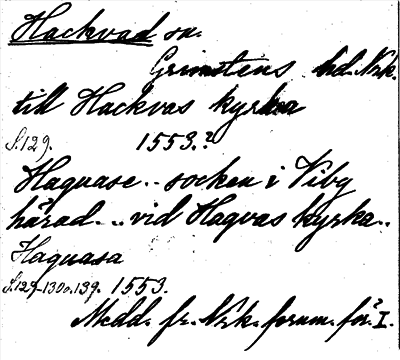 Hackvad sn.
Grimstens hd. Nrk.
till Hackvas kyrkia
S. 129. 1553.?
Haquase.. socken i Viby
härad... vid Haqvas kyrka..
Haquasa
S. 129-130 o. 139. 1553.
Medd. fr. Nrk. fornm. för. I.